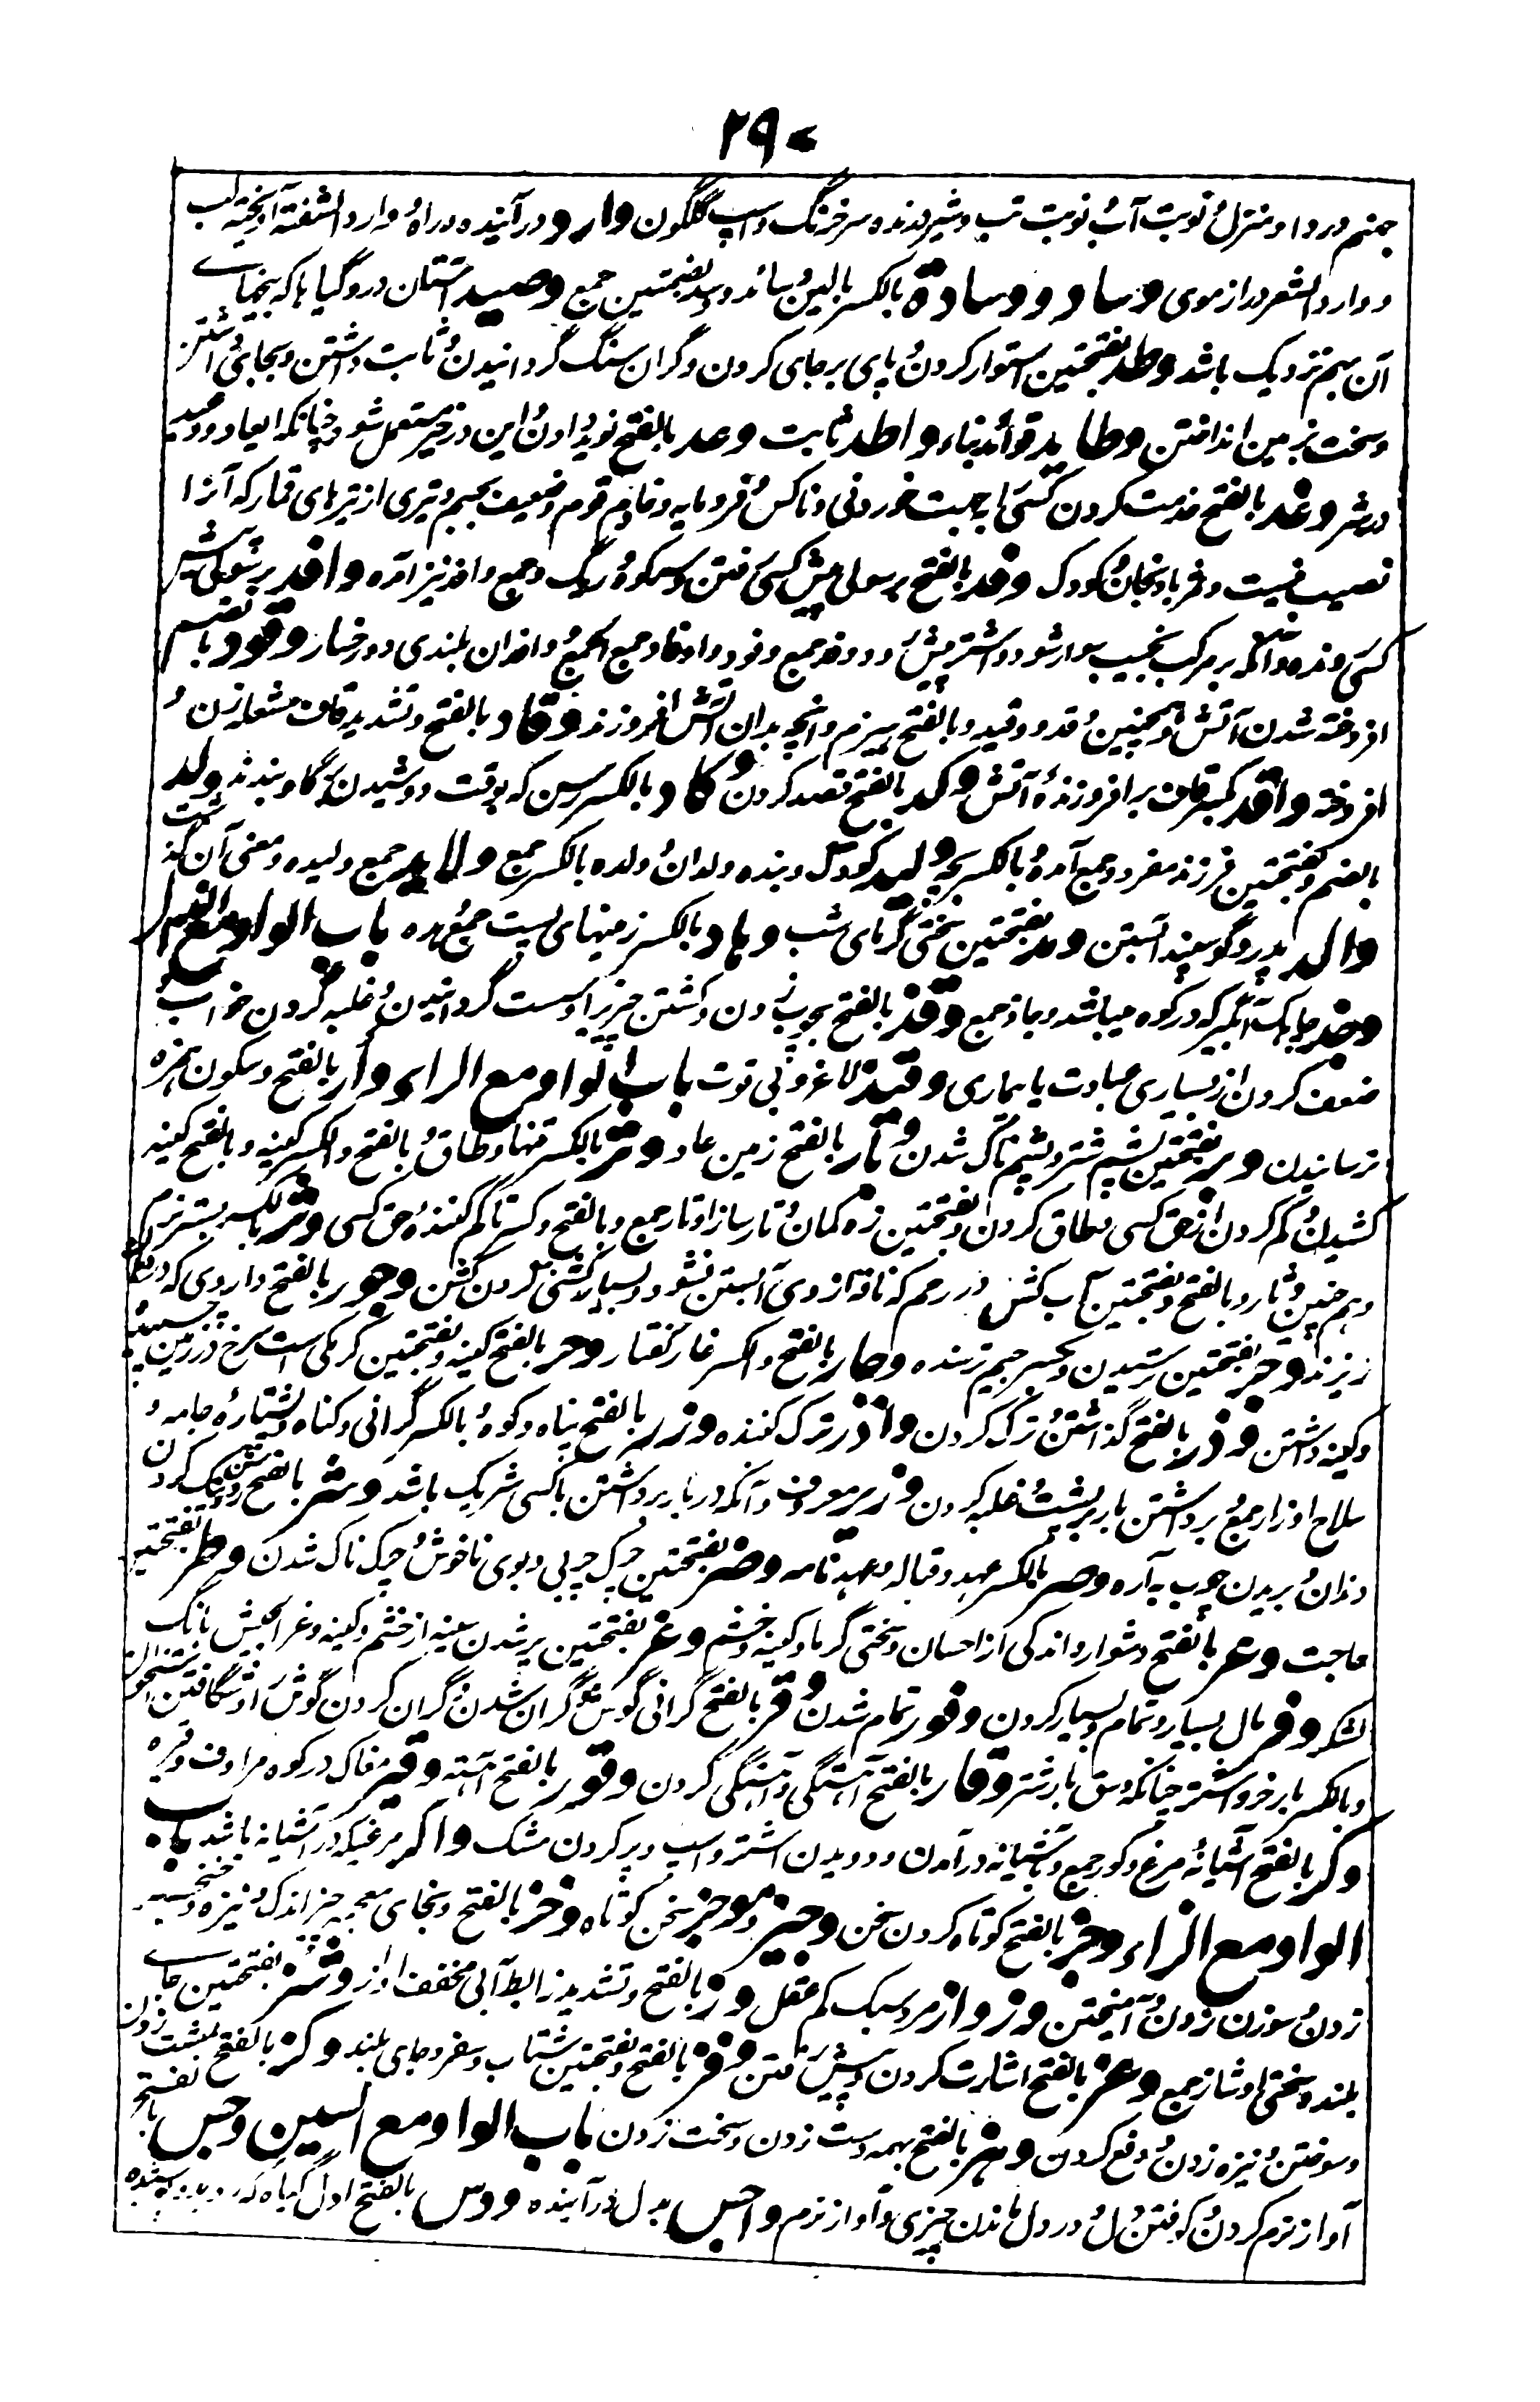 ۲۹۰
جمنم ورد او منزل و نوبت آب و نوبت تب و شیر درنده سرخ رنگ و اسپ گلگون وارد در آینده و راه وارد الشفته آویخته لب
و وارد الشعر دراز موی وساد و وسادة بالکسر بالین وسائد و وسد بضمتین جمع وصید آستان در و گیاهها که بیخهای
آن بهم نزدیک باشد وطد بفتحتین استوار کردن و پای بر جای کردن و گران سنگ گردانیدن و ثابت داشتن و بجای داشتن
و سخت بزمین انداختن وطاید قوائد بناء واطد ثابت وعد بالفتح نوید دادن و این در خیر مستعمل شود چنانکه ایعاد و وعید
در شر وغد بالفتح خدمت کردن کسی را بجهت خوردنی و ناکس و فرومایه و خادم قوم و ضعیف بجسم و تیری از تیرهای قمار که آنرا
نصیب نیست و ثمر بادنجان و کودک وفد بالفتح برسولی پیش کسی رفتن و سرکوه ریگ و جمع وافد نیز آمده وافد برسولی پیش
کسی رونده و آنکه بر مرکب نجیب سوار شود و اشتر پیش رو و وفد جمع وفود و اوفاد جمع الجمع و وافدان بلندی دو رخسار وقود بالضم
افروخته شدن آتش و همچنین وقد و وقید و بالفتح هیزم و آنچه بدان آتش افروزند وقاد بالفتح و تشدید قاف مشعله زن و
افروخته واقد بکسر قاف بر افروزنده آتش وکد بالفتح قصد کردن وکاد بالکسر رسن که بوقت دوشیدن پای گاو بندند ولد
بالضم و بفتحتین فرزند مفرد و جمع آمده و بالکسر بچه ولید کودک و بنده ولدان و ولده بالکسر جمع ولاید جمع ولیده و معنی آن گذشت
والد پدر و گوسپند آبستن ومد بفتحتین سختی گرمای شب وهاد بالکسر زمینهای پست جمع وهده باب الواو مع الذال
وجذ جایی آبگیر که در کوه میباشد وجاذ جمع وقذ بالفتح بچوب زدن و کشتن چیزیرا و سست گردانیدن و غلبه کردن خواب و
ضعف کردن از بسیاری عبادت یا بیماری وقیذ لاغر و بی قوت باب الواو مع الراء وأر بالفتح و سکون همزه
ترسانیدن وبر بفتحتین پشم شتر و پشم ناک شدن وبار بالفتح زمین عاد وتر بالکسر تنها و طاق و بالفتح و الکسر کینه و بالفتح کینه
کشیدن و کم کردن از حق کسی و طاق کردن و بفتحتین زه کمان و تار ساز اوتار جمع و بالفتح و کسر تا کم کننده حق کسی وثر بالکسر بستر نرم
و هم چنین وثار و بالفتح و بفتحتین آب کش در رحم که ناقه از وی آبستن نشود و بسیار گشنی کردن گشن وجور بالفتح داروی که در گلو
ریزند وجر بفتحتین ترسیدن و بکسر جیم ترسنده وجار بالفتح و الکسر غار کفتار وحر بالفتح کینه و بفتحتین کرمکی است سرخ در زمین
و کینه داشتن وذر بالفتح گذاشتن و ترک کردن واذر ترک کننده وزر بالفتح پناه و کوه و بالکسر گرانی و گناه و پشتیاره جامه و
سلاح اوزار جمع و برداشتن بار بر پشت و غلبه کردن وزیر معروف و آنکه در بار برداشتن با کسی شریک باشد وشر بالفتح تنک کردن
دندان و بریدن چوب به آره وصر بالکسر عهد و قباله و عهدنامه وضر بفتحتین چرک چربی و بوی ناخوش و چرک ناک شدن وطر بفتحتین
حاجت وعر بالفتح دشوار و اندکی از احسان و سختی گرما و کینه و خشم وغر بفتحتین پر شدن سینه از خشم و کینه و غر الجیش بانگ
لشکر وفر مال بسیار و تمام و بسیار کردن وفور تمام شدن وقر بالفتح گرانی گوش و گران شدن و گران کردن گوش و شگافتن
و بالکسر بار خر و استر چنانکه وسق بار شتر وقار بالفتح آهستگی و آهستگی کردن وقور بالفتح آهسته وقیر مغاک در کوه مرادف وقره
وکر بالفتح آشیانه مرغ وکور جمع و بآشیانه در آمدن و دویدن اشتر و اسپ و پر کردن مشک واکر مرغیکه در آشیانه باشد باب
الواو مع الزاء وجز بالفتح کوتاه کردن سخن وجیز و موجز سخن کوتاه وخز بالفتح و بخای معجمه چیز اندک و نیزه و خنجر
زدن و سوزن زدن و آمیختن وزواز مرد سبک کم عقل وز بالفتح و تشدید زا بط آبی مخفف اوز وشز بفتحتین جای
بلند و سختی اوشاز جمع وعز بالفتح اشارت کردن و پیش رفتن وفز بالفتح و بفتحتین شتاب و سفر و جای بلند وکز بالفتح بمشت زدن
و سوختن و نیزه زدن و دفع کردن وهز بالفتح بهمه دست زدن و سخت زدن باب الواو مع السین وجس بالفتح
آواز نرم کردن و کوفتن دل و در دل ماندن چیزی و آواز نرم واجس بدل در آینده ودس بالفتح اول گیاه که روید و پوشیده